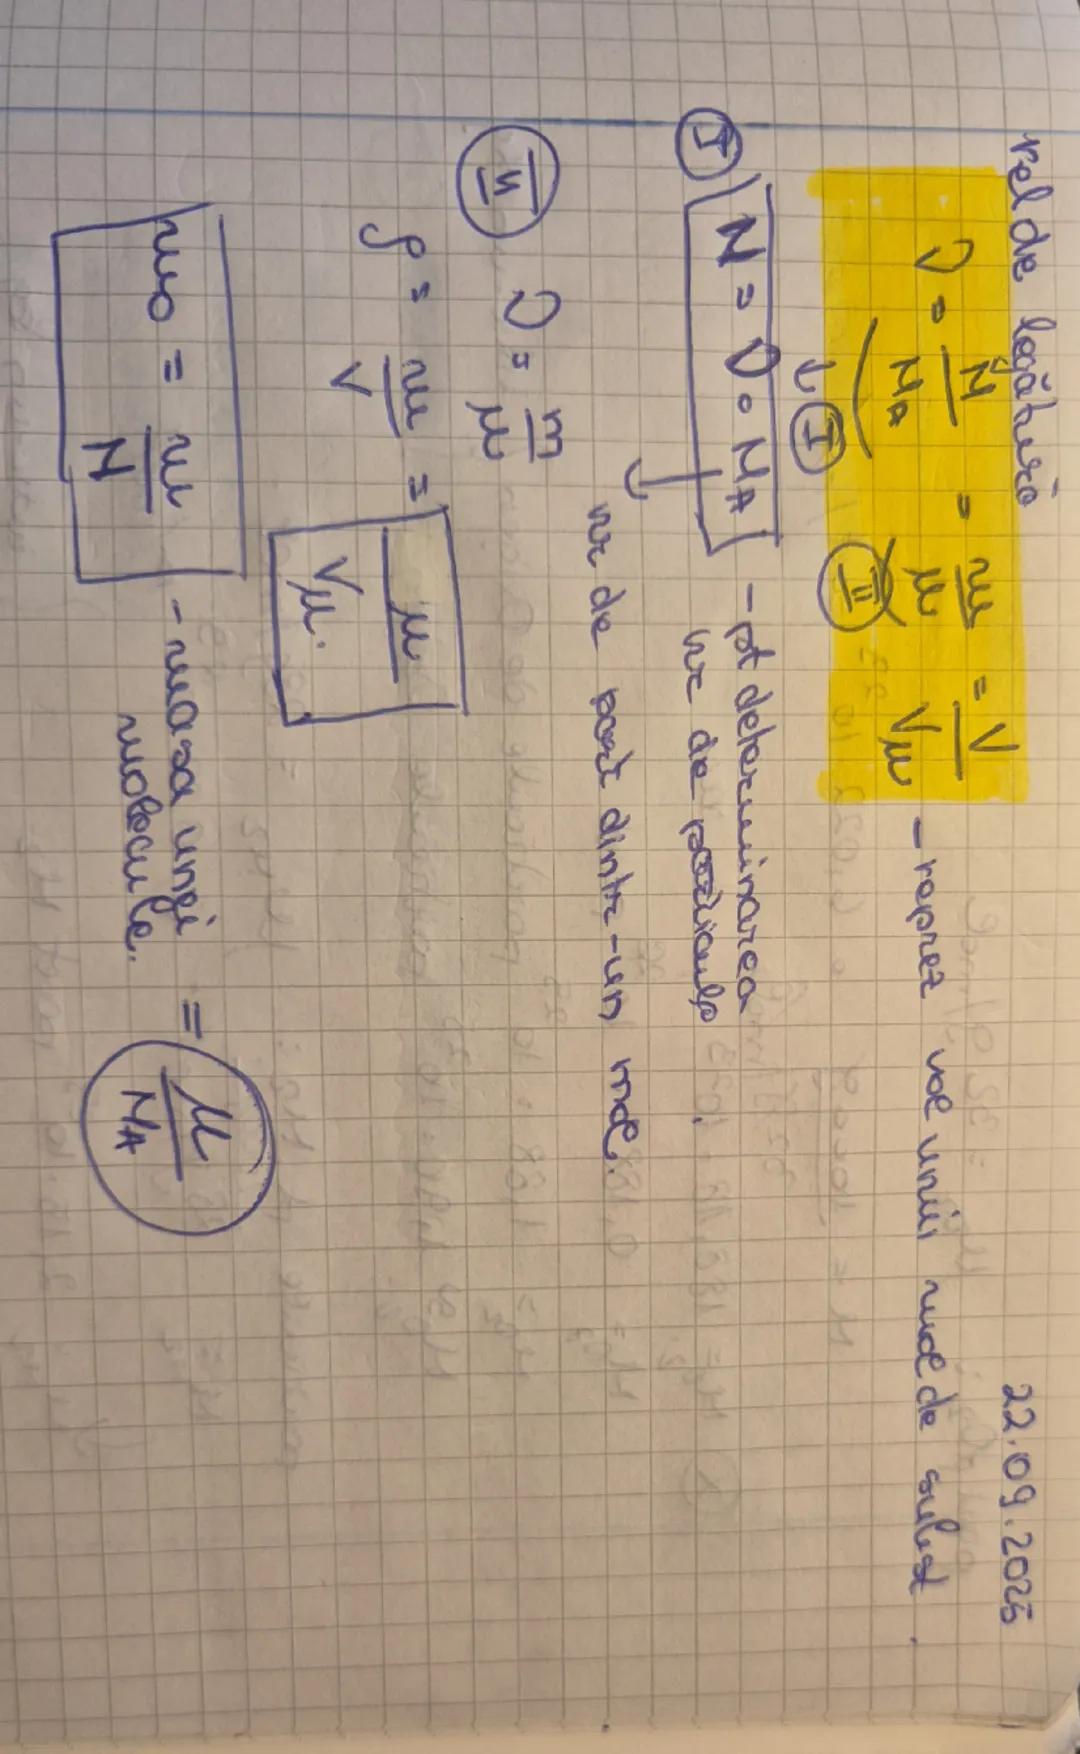 22.09.2025
rel de legătură
ν = N/N_A = m/μ = V/Vμ - reprez vol unui mol de subst.
↓ I II
I N = ν · N_A - pt determinarea
nr de particule
↳ nr de part dintr-un mol.
II ν = m/μ
ρ = m/V = μ/Vμ.
m0 = m/N - masa unei = μ/N_A
molecule.